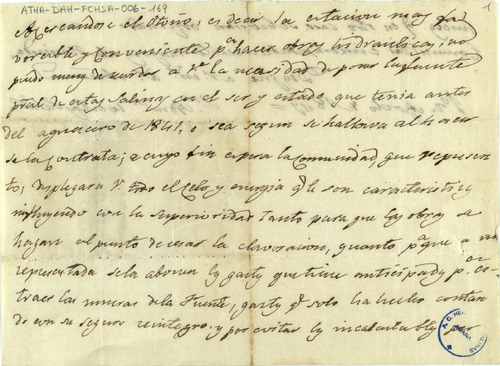 ATHA-DAH-FCHSA-006-169
1
Acercandose el Otoño, es decir la estacion mas fa
vorable y conveniente pa. hacer obras hidraulicas, in
pural de estas Salinas en el ser y estado que tenia antes
del aguacero de 1841, o sea segun se hallava al hacer
se la Contrata; a cuyo fin espera la Comunidad, que represen
to, desplegara V. todo el celo y energia qe. le son caracteristicas
influyendo con la superioridad tanto para que las obras se
hagan al punto de cesar la elavoracion, quanto pa. que a mi
representada se la abonen los gastos que tiene anticipados pa. es-
traer las mueras de la Fuente, gastos qe. solo ha hecho contan
do con su seguro reintegro, y por evitar los incalculables per